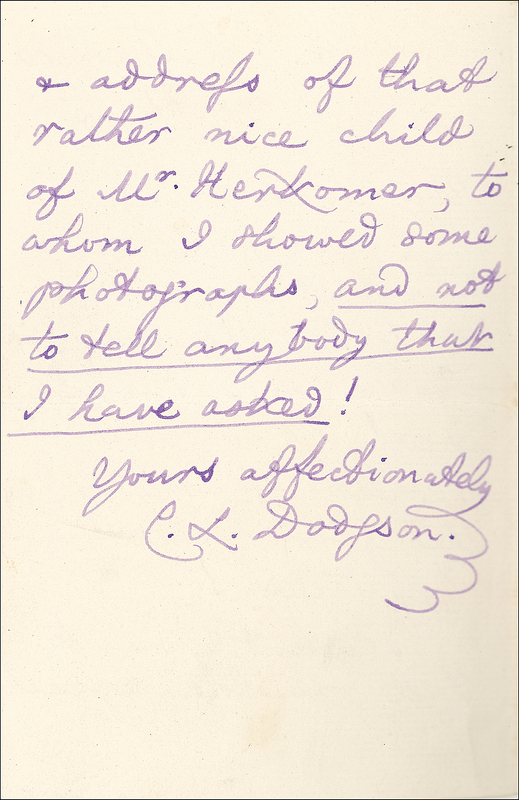 & addreſs of that
rather nice child
of Mr. Herkomer, to
whom I showed some
photographs, and not
to tell anybody that
I have asked!
Yours affectionately
C. L. Dodgson.